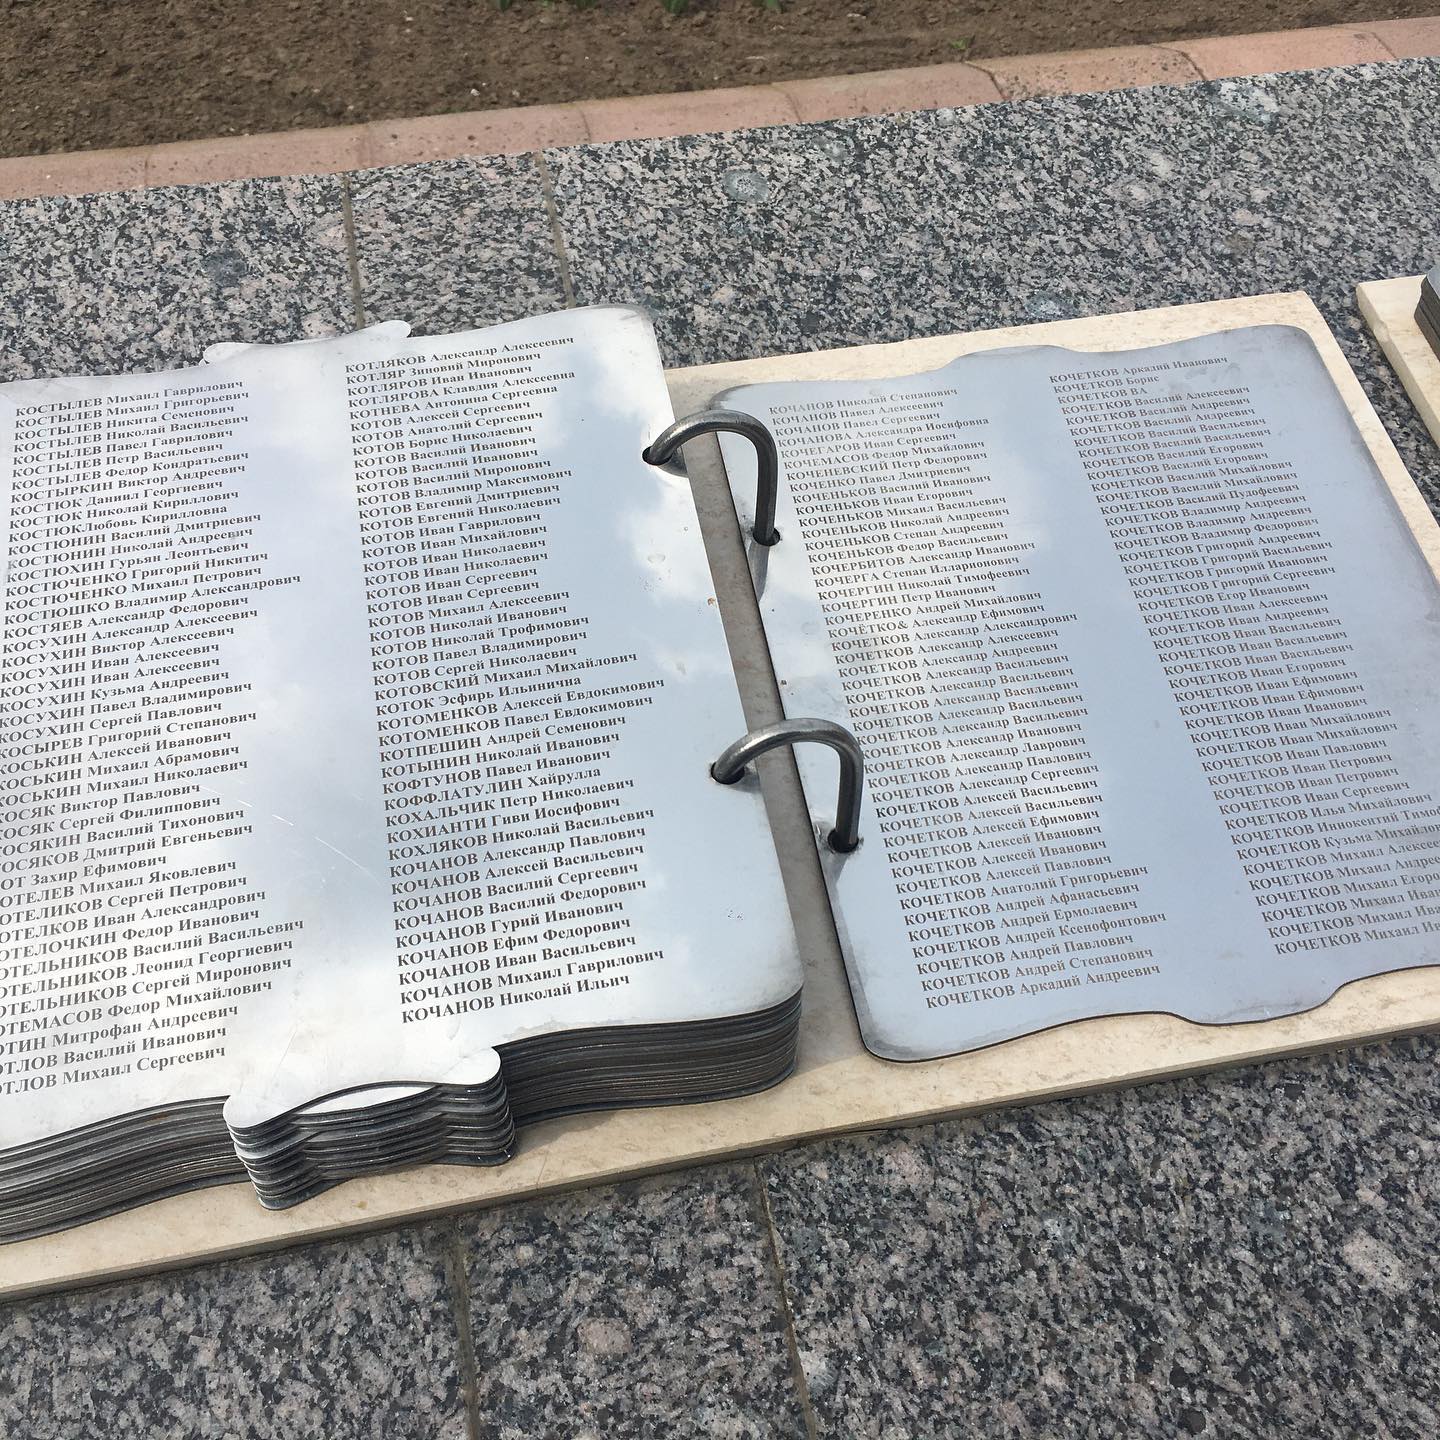 КОСТЫЛЕВ Михаил Гаврилович
КОСТЫЛЕВ Михаил Григорьевич
КОСТЫЛЕВ Никита Семенович
КОСТЫЛЕВ Николай Васильевич
КОСТЫЛЕВ Павел Гаврилович
КОСТЫЛЕВ Петр Васильевич
КОСТЫЛЕВ Федор Кондратьевич
КОСТЫРКИН Виктор Андреевич
КОСТЮК Даниил Георгиевич
КОСТЮК Николай Кириллович
КОСТЮКЛюбовь Кирилловна
КОСТЮНИН Василий Дмитриевич
КОСТЮНИН Николай Андреевич
КОСТЮХИН Гурьян Леонтьевич
КОСТЮЧЕНКО Григорий Никитич
КОСТЮЧЕНКО Михаил Петрович
КОСТЮШКО Владимир Александрович
КОСТЯЕВ Александр Федорович
КОСУХИН Александр Алексеевич
КОСУХИН Виктор Алексеевич
КОСУХИН Иван Алексеевич
КОСУХИН Иван Алексеевич
КОСУХИН Кузьма Андреевич
КОСУХИН Павел Владимирович
КОСУХИН Сергей Павлович
КОСЫРЕВ Григорий Степанович
КОСЬКИН Алексей Иванович
КОСЬКИН Михаил Абрамович
КОСЬКИН Михаил Николаевич
КОСЯК Виктор Павлович
КОСЯК Сергей Филиппович
КОСЯКИН Василий Тихонович
КОСЯКОВ Дмитрий Евгеньевич
ОТ Захир Ефимович
ОТЕЛЕВ Михаил Яковлевич
ОТЕЛИКОВ Сергей Петрович
ОТЕЛКОВ Иван Александрович
ОТЕЛОЧКИН Федор Иванович
ОТЕЛЬНИКОВ Василий Васильевич
ОТЕЛЬНИКОВ Леонид Георгиевич
ОТЕЛЬНИКОВ Сергей Миронович
ОТЕМАСОВ Федор Михайлович
ОТИН Митрофан Андреевич
ОТЛОВ Василий Иванович
ОТЛОВ Михаил Сергеевич
КОТЛЯКОВ Александр Алексеевич
КОТЛЯР Зиновий Миронович
КОТЛЯРОВ Иван Иванович
КОТЛЯРОВА Клавдия Алексеевна
КОТНЕВА Антонина Сергеевна
КОТОВ Алексей Сергеевич
КОТОВ Анатолий Сергеевич
КОТОВ Борис Николаевич
КОТОВ Василий Иванович
КОТОВ Василий Иванович
КОТОВ Василий Миронович
КОТОВ Владимир Максимович
КОТОВ Евгений Дмитриевич
КОТОВ Евгений Николаевич
КОТОВ Иван Гаврилович
КОТОВ Иван Михайлович
КОТОВ Иван Николаевич
КОТОВ Иван Николаевич
КОТОВ Иван Сергеевич
КОТОВ Михаил Алексеевич
КОТОВ Николай Иванович
КОТОВ Николай Трофимович
КОТОВ Павел Владимирович
КОТОВ Сергей Николаевич
КОТОВСКИЙ Михаил Михайлович
КОТОК Эсфирь Ильинична
КОТОМЕНКОВ Алексей Евдокимович
КОТОМЕНКОВ Павел Евдокимович
КОТПЕШИН Андрей Семенович
КОТЫНИН Николай Иванович
КОФТУНОВ Павел Иванович
КОФФЛАТУЛИН Хайрулла
КОХАЛЬЧИК Петр Николаевич
КОХИАНТИ Гиви Иосифович
КОХЛЯКОВ Николай Васильевич
КОЧАНОВ Александр Павлович
КОЧАНОВ Алексей Васильевич
КОЧАНОВ Василий Сергеевич
КОЧАНОВ Василий Федорович
КОЧАНОВ Гурий Иванович
КОЧАНОВ Ефим Федорович
КОЧАНОВ Иван Васильевич
КОЧАНОВ Михаил Гаврилович
КОЧАНОВ Николай Ильич
КОЧАНОВ Николай Степанович
КОЧАНОВ Павел Алексеевич
КОЧАНОВ Павел Сергеевич
КОЧАНОВА Александра Иосифовна
КОЧЕГАРОВ Иван Сергеевич
КОЧЕМАСОВ Федор Михайлович
КОЧЕНЕВСКИЙ Петр Федорович
КОЧЕНКО Павел Дмитриевич
КОЧЕНЬКОВ Василий Иванович
КОЧЕНЬКОВ Иван Егорович
КОЧЕНЬКОВ Михаил Васильевич
КОЧЕНЬКОВ Николай Андреевич
КОЧЕНЬКОВ Степан Андреевич
КОЧЕНЬКОВ Федор Васильевич
КОЧЕРБИТОВ Александр Иванович
КОЧЕРГА Степан Илларионович
КОЧЕРГИН Николай Тимофеевич
КОЧЕРГИН Петр Иванович
КОЧЕРЕНКО Андрей Михайлович
КОЧЁТКО& Александр Ефимович
КОЧЕТКОВ Александр Александрович
КОЧЕТКОВ Александр Андреевич
КОЧЕТКОВ Александр Васильевич
КОЧЕТКОВ Александр Васильевич
КОЧЕТКОВ Александр Васильевич
КОЧЕТКОВ Александр Васильевич
КОЧЕТКОВ Александр Иванович
КОЧЕТКОВ Александр Лаврович
КОЧЕТКОВ Александр Павлович
КОЧЕТКОВ Александр Сергеевич
КОЧЕТКОВ Алексей Васильевич
КОЧЕТКОВ Алексей Васильевич
КОЧЕТКОВ Алексей Ефимович
КОЧЕТКОВ Алексей Иванович
КОЧЕТКОВ Алексей Иванович
КОЧЕТКОВ Алексей Павлович
КОЧЕТКОВ Анатолий Григорьевич
КОЧЕТКОВ Андрей Афанасьевич
КОЧЕТКОВ Андрей Ермолаевич
КОЧЕТКОВ Андрей Ксенофонтович
КОЧЕТКОВ Андрей Павлович
КОЧЕТКОВ Андрей Степанович
КОЧЕТКОВ Аркадий Андреевич
КОЧЕТКОВ Аркадий Иванович
КОЧЕТКОВ Борис
КОЧЕТКОВ ВА
КОЧЕТКОВ Василий Алексеевич
КОЧЕТКОВ Василий Андреевич
КОЧЕТКОВ Василий Андреевич
КОЧЕТКОВ Василий Васильевич
КОЧЕТКОВ Василий Васильевич
КОЧЕТКОВ Василий Егорович
КОЧЕТКОВ Василий Егорович
КОЧЕТКОВ Василий Михайлович
КОЧЕТКОВ Василий Михайлович
КОЧЕТКОВ Василий Пудофеевич
КОЧЕТКОВ Владимир Андреевич
КОЧЕТКОВ Владимир Андреевич
КОЧЕТКОВ Владимир Федорович
КОЧЕТКОВ Григорий Андреевич
КОЧЕТКОВ Григорий Васильевич
КОЧЕТКОВ Григорий Иванович
КОЧЕТКОВ Григорий Сергеевич
КОЧЕТКОВ Егор Иванович
КОЧЕТКОВ Иван Алексеевич
КОЧЕТКОВ Иван Андреевич
КОЧЕТКОВ Иван Васильевич
КОЧЕТКОВ Иван Васильевич
КОЧЕТКОВ Иван Егорович
КОЧЕТКОВ Иван Ефимович
КОЧЕТКОВ Иван Ефимович
КОЧЕТКОВ Иван Иванович
КОЧЕТКОВ Иван Михайлович
КОЧЕТКОВ Иван Михайлович
КОЧЕТКОВ Иван Павлович
КОЧЕТКОВ Иван Петрович
КОЧЕТКОВ Иван Петрович
КОЧЕТКОВ Иван Сергеевич
КОЧЕТКОВ Илья Михайлович
КОЧЕТКОВ Иннокентий Тимоф
КОЧЕТКОВ Кузьма Михайло
КОЧЕТКОВ Михаил Алексее
КОЧЕТКОВ Михаил Андрее
КОЧЕТКОВ Михаил Егоро
КОЧЕТКОВ Михаил Ива
КОЧЕТКОВ Михаил Ив